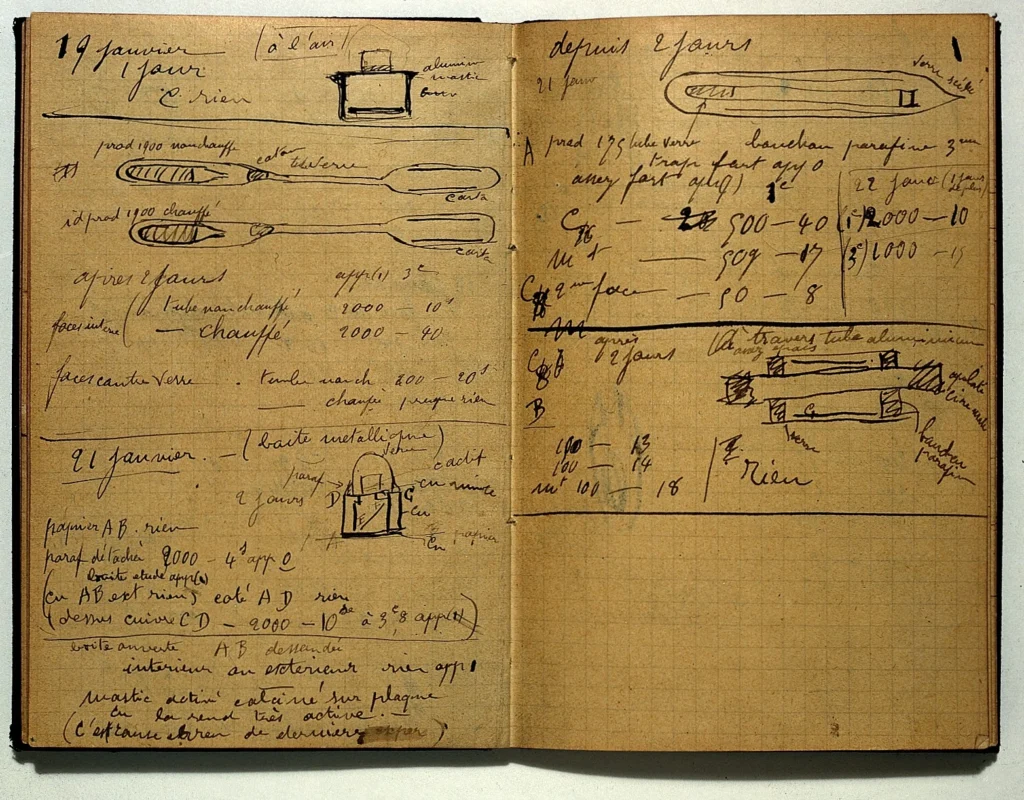 19 janvier (à l'air)
1 jour
C rien
aluminium
mastic
prod 1900 non chauffé
tube verre
caota
id prod 1900 chauffé
caota
après 2 jours app(1) 3c
faces interne ( tube non chauffé 2000 — 10s
— chauffé 2000 — 40
faces contre verre . tube non ch 200 — 20s
— chauffé presque rien
21 janvier. — (boite metallique)
verre
paraf
cactif
2 jours D C
en
Cu
A Cu papier
papier AB. rien
paraf détaché 2000 — 4s app 0
boite etude app(1)
(cu AB ext rien, coté AD rien
(dessus cuivre CD — 2000 — 10 à 3c,8 app(1))
boite ouverte AB dessoudé
interieur ou exterieur rien app 1
mastic activé calciné sur plaque
cu la rend très active. —
(C'est cause erreur de dernière exper)
depuis 2 jours 1
21 janv verre scélé
A prod 175 tube verre bouchon parafine 3mm
trop fort app 0
assez fort app(1) 1c 22 janv (1 jour de plus)
C 500 — 40 (1c) 2000 — 10
mt — 509 — 17 (3c) 1000 — 15
C 2me face — 50 — 8
après
2 jours (à travers tube aluminium
assez épais
B
verre bouchon
parafin
100 — 13
100 — 14 rien
mt 100 — 18